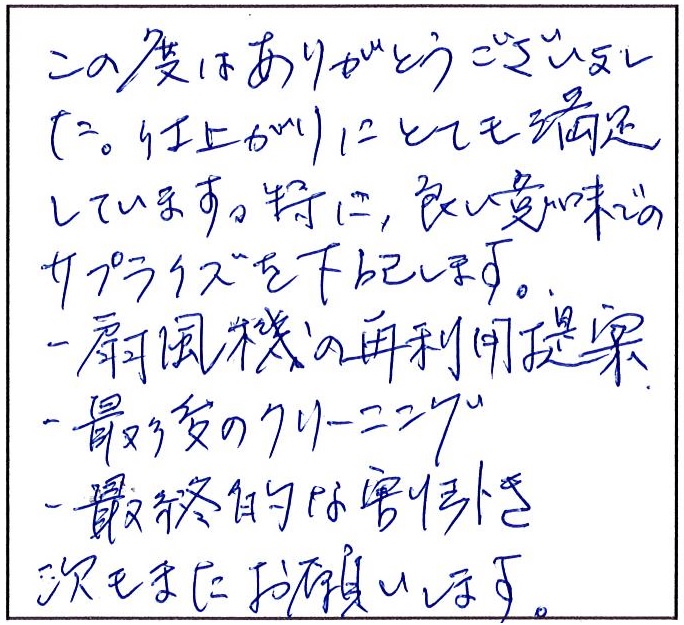 この度はありがとうございまし
た。仕上がりにとても満足
しています。特に、良い意味での
サプライズを下記します。
- 扇風機の再利用提案
- 最後のクリーニング
- 最終的な割引き
次もまたお願いします。